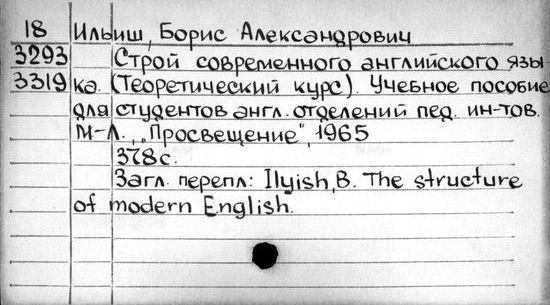 18 Ильиш, Борис Александрович
3293 Строй современного английского язы-
3319 ка. (Теоретический курс). Учебное пособие
для студентов англ. отделений пед. ин-тов.
М-Л., „Просвещение", 1965
378с.
Загл. перепл: Ilyish, B. The structure
of modern English.